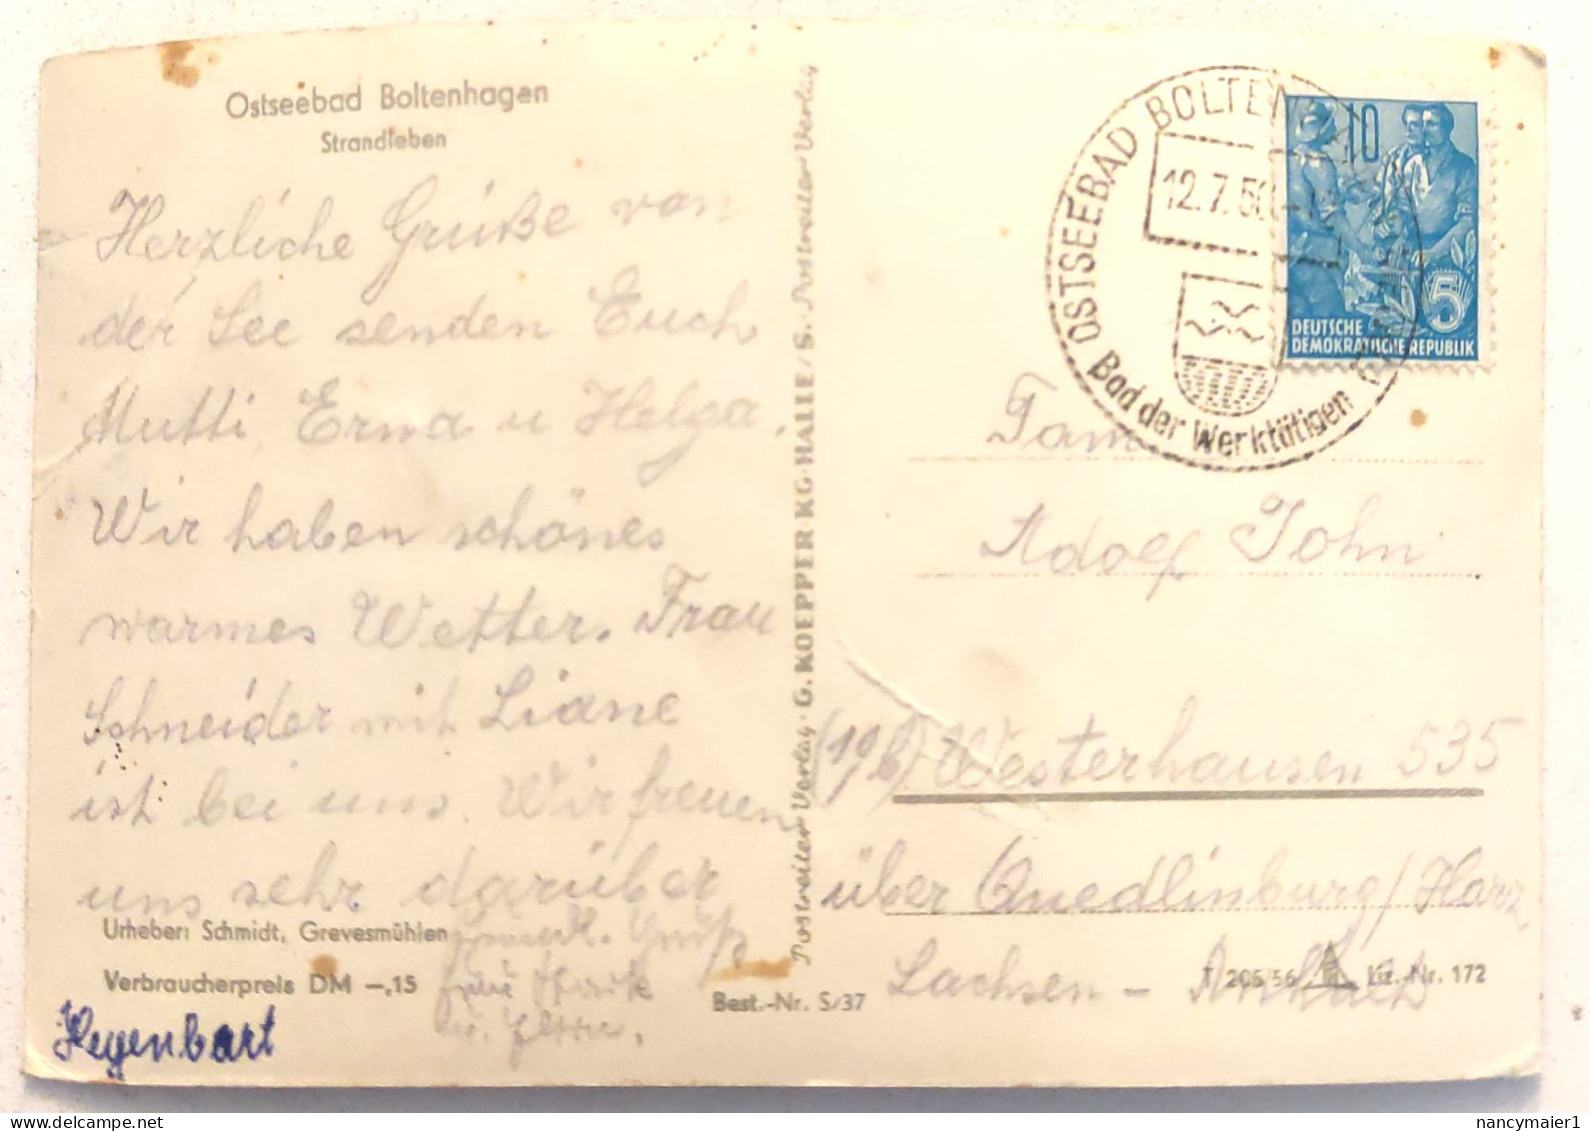 Ostseebad Boltenhagen
Strandleben
Herzliche Grüße von
der See senden Euch
Mutti, Erna u Helga.
Wir haben schönes
warmes Wetter. Frau
Schneider mit Liane
ist bei uns. Wir freuen
uns sehr darüber
Urheber: Schmidt, Grevesmühlen
Verbraucherpreis DM —,15
Hegenbart
Best.-Nr. S/37
Postreiter Verlag · G. KOEPPER KG · HALLE/S. Postreiter Verlag
OSTSEEBAD
12.7.5
Bad der Werktätigen
10
5
DEUTSCHE
DEMOKRATISCHE REPUBLIK
Fam
Adolf John
(19b) Westerhausen 535
über Quedlinburg/Harz
Sachsen - Anhalt
T 205/56 Liz.-Nr. 172
nancymaier1